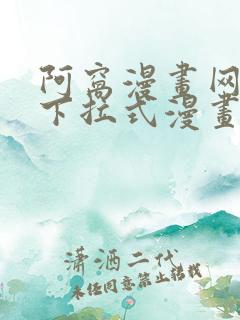 阿窩漫畫网
下拉式漫畫
潇酒二代
未经同意禁止转载